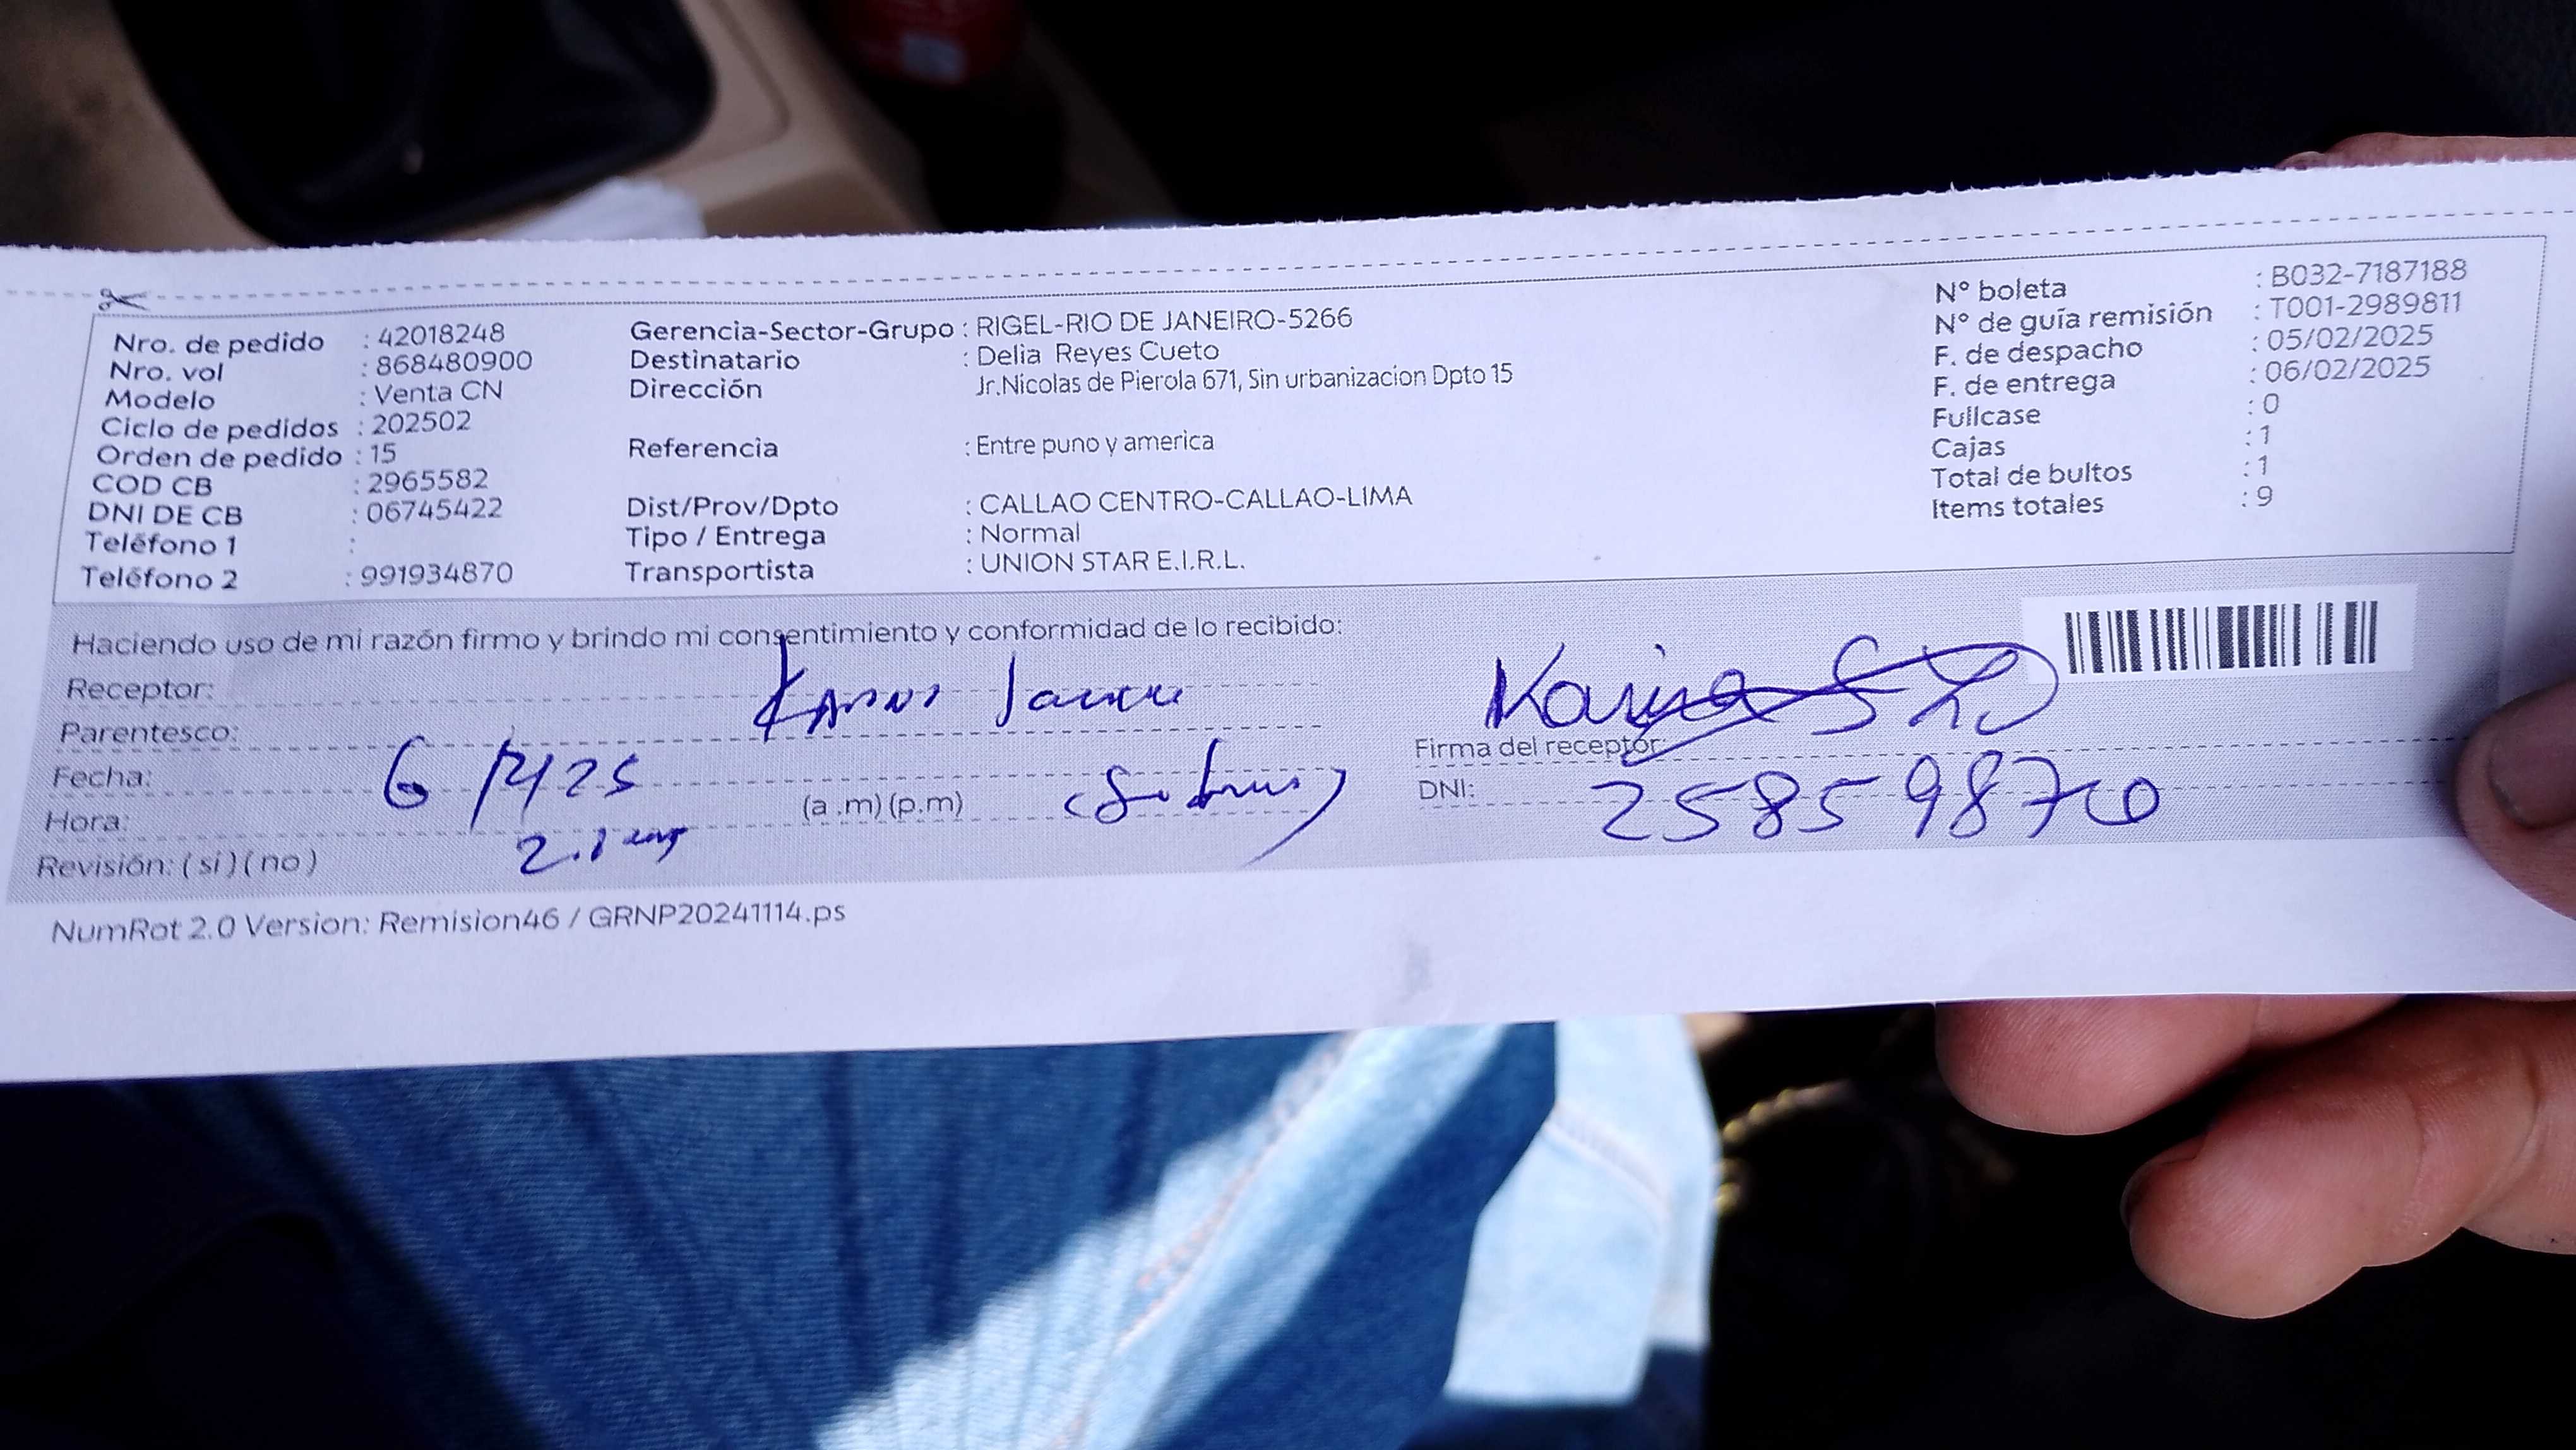 Nro. de pedido : 42018248
Nro. vol : 868480900
Modelo : Venta CN
Ciclo de pedidos : 202502
Orden de pedido : 15
COD CB : 2965582
DNI DE CB : 06745422
Teléfono 1 :
Teléfono 2 : 991934870
Gerencia-Sector-Grupo : RIGEL-RIO DE JANEIRO-5266
Destinatario : Delia Reyes Cueto
Dirección Jr.Nicolas de Pierola 671, Sin urbanizacion Dpto 15
Referencia : Entre puno y america
Dist/Prov/Dpto : CALLAO CENTRO-CALLAO-LIMA
Tipo / Entrega : Normal
Transportista : UNION STAR E.I.R.L.
N° boleta : B032-7187188
N° de guía remisión : T001-2989811
F. de despacho : 05/02/2025
F. de entrega : 06/02/2025
Fullcase : 0
Cajas : 1
Total de bultos : 1
Items totales : 9
Haciendo uso de mi razón firmo y brindo mi consentimiento y conformidad de lo recibido:
Receptor:
Parentesco:
Fecha: 6
Hora: (a.m) (p.m)
Revisión: ( si ) ( no )
Karina
Firma del receptor:
DNI:
NumRot 2.0 Version: Remision46 / GRNP20241114.ps